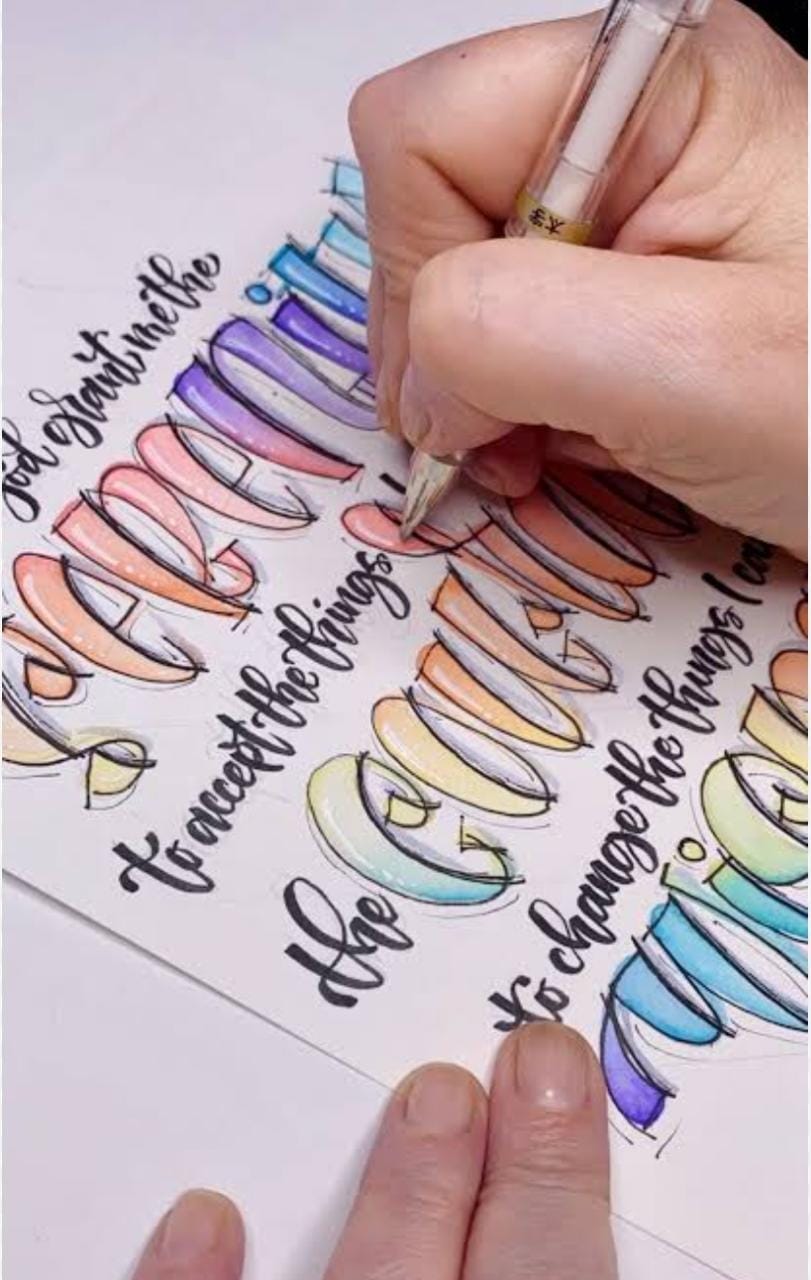 God grant me the
Serenit
to accept the things
the Courage
to change the things I ca
Wi
太字